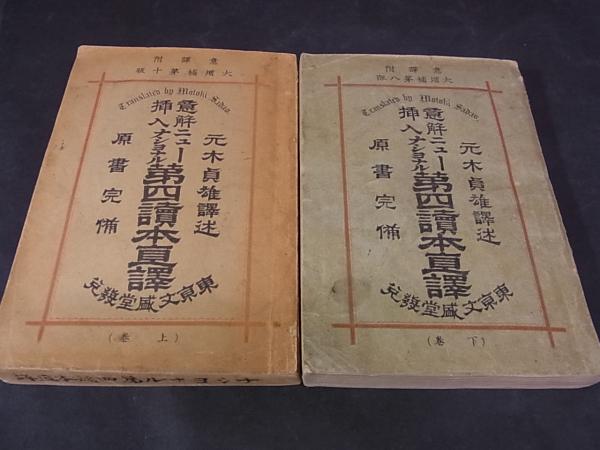 意譯附
大増補第十版
Translated by Motoki Sadao.
元木貞雄譯述
意解挿入
ニューナショナル
第四讀本直譯
原書完備
東京文盛堂發兌
（上卷）
意譯附
大増補第八版
Translated by Motoki Sadao.
元木貞雄譯述
意解挿入
ニューナショナル
第四讀本直譯
原書完備
東京文盛堂發兌
（下卷）